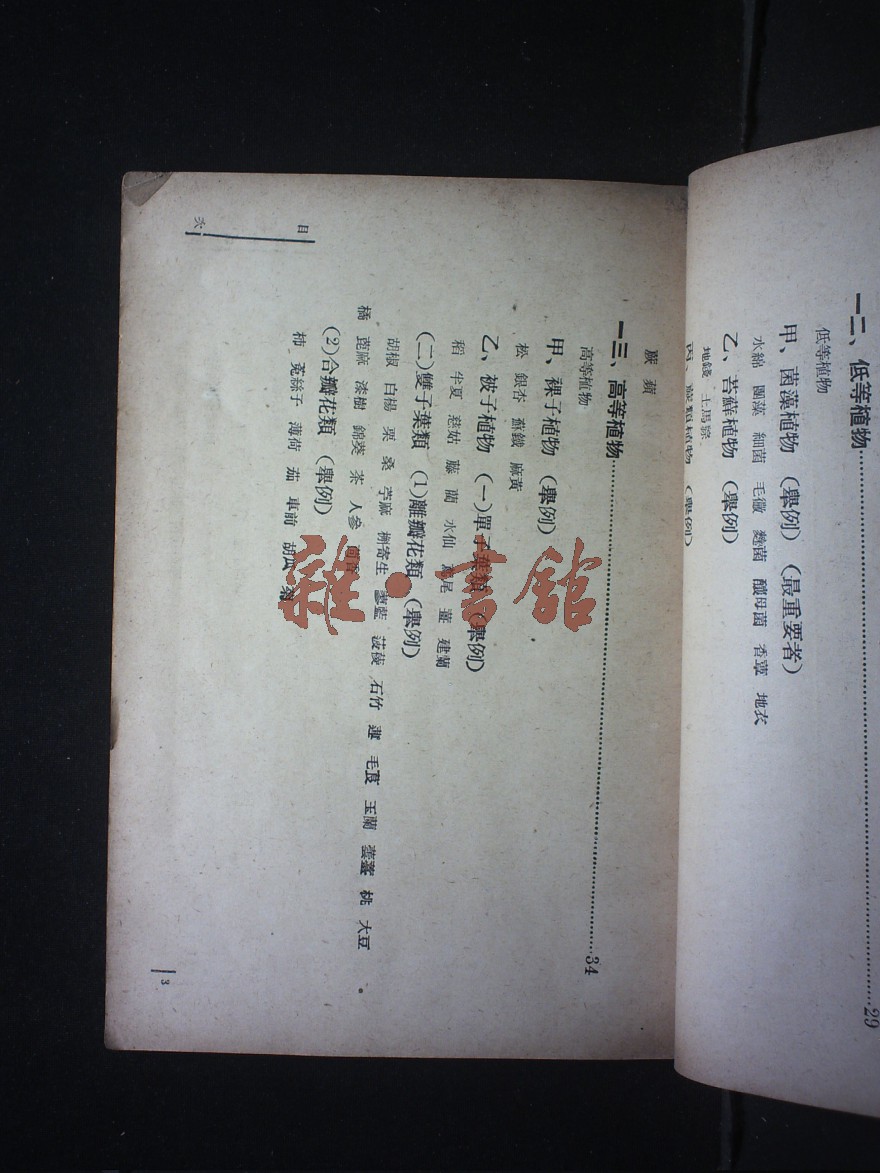 一二、低等植物……29
低等植物
甲、菌藻植物（舉例）（最重要者）
水綿 團藻 細菌 毛黴 麴菌 釀母菌 香蕈 地衣
乙、苔蘚植物（舉例）
地錢 土馬騌
丙、蕨類植物（舉例）
蕨 蘋
一三、高等植物……34
高等植物
甲、裸子植物（舉例）
松 銀杏 蘇鐵 麻黃
乙、被子植物（一）單子葉類（舉例）
稻 半夏 慈姑 藤 蘭 水仙 鳶尾 薑 建蘭
（二）雙子葉類（1）離瓣花類（舉例）
胡椒 白楊 栗 桑 苧麻 槲寄生 蓼藍 菠薐 石竹 蓮 毛茛 玉蘭 蕓薹 桃 大豆
橘 蓖麻 漆樹 錦葵 茶 人參 茴香
（2）合瓣花類（舉例）
柿 菟絲子 薄荷 茄 車前 胡瓜 菊
目次
3